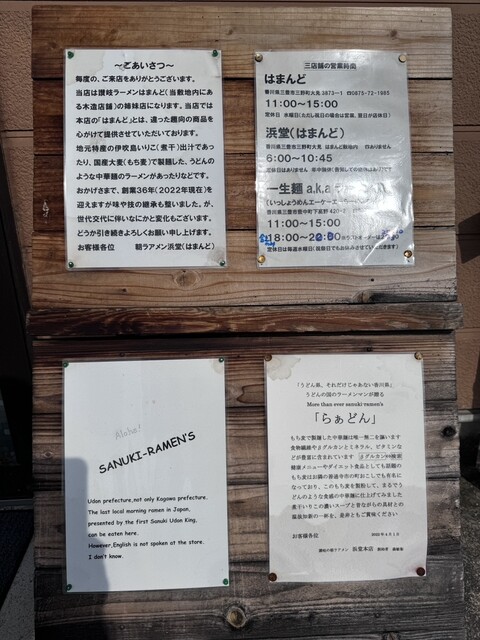 ～ごあいさつ～
毎度の、ご来店をありがとうございます。
当店は讃岐ラーメンはまんど(当敷地内にある
木造店舗)の姉妹店になります。当店では
本店の「はまんど」とは、違った趣向の商品を
心がけて提供させていただいております。
地元特産の伊吹島いりこ(煮干)出汁であっ
たり、国産大麦(もち麦)で製麺した、うどんの
ような中華麺のラーメンがあったりなどです。
おかげさまで、創業36年(2022年現在)を
迎えますが味や技の継承も整いました。が、
世代交代に伴いなにかと変化もございます。
どうか引き続きよろしくお願い申し上げます。
お客様各位　朝ラアメン浜堂(はまんど)
三店舗の営業時間
はまんど
香川県三豊市三野町大見 3873-1 ☎0875-72-1985
11:00～15:00
定休日 水曜日(ただし祝日の場合は営業、翌日が店休日)
浜堂(はまんど)
香川県三豊市三野町大見 はまんど敷地内
6:00～10:45
定休日はありません
一生麺 a.k.a
11:00～15:00
定休日は毎週水曜日
Aloha!
SANUKI-RAMEN'S
Udon prefecture,not only Kagawa prefecture.
The last local morning ramen in Japan,
presented by the first Sanuki Udon King,
can be eaten here.
However,English is not spoken at the store.
I don't know.
「うどん県、それだけじゃない香川県」
うどんの国のラーメンマンが贈る
More than ever sanuki ramen's
「らぁどん」
もち麦で製麺した中華麺は唯一無二を謳います
食物繊維やβグルカンとミネラル、ビタミンな
どが豊富に含まれています βグルカンの検索
健康メニューやダイエット食品としても話題の
もち麦はお隣の善通寺市の町おこしでも有名に
なっており、このもち麦を製粉して、まるでう
どんのような食感の中華麺に仕上げてみました
煮干いりこの濃いスープと昔ながらの具材との
温故知新の一杯を、是非ともご賞味ください
お客様各位
浜堂本店